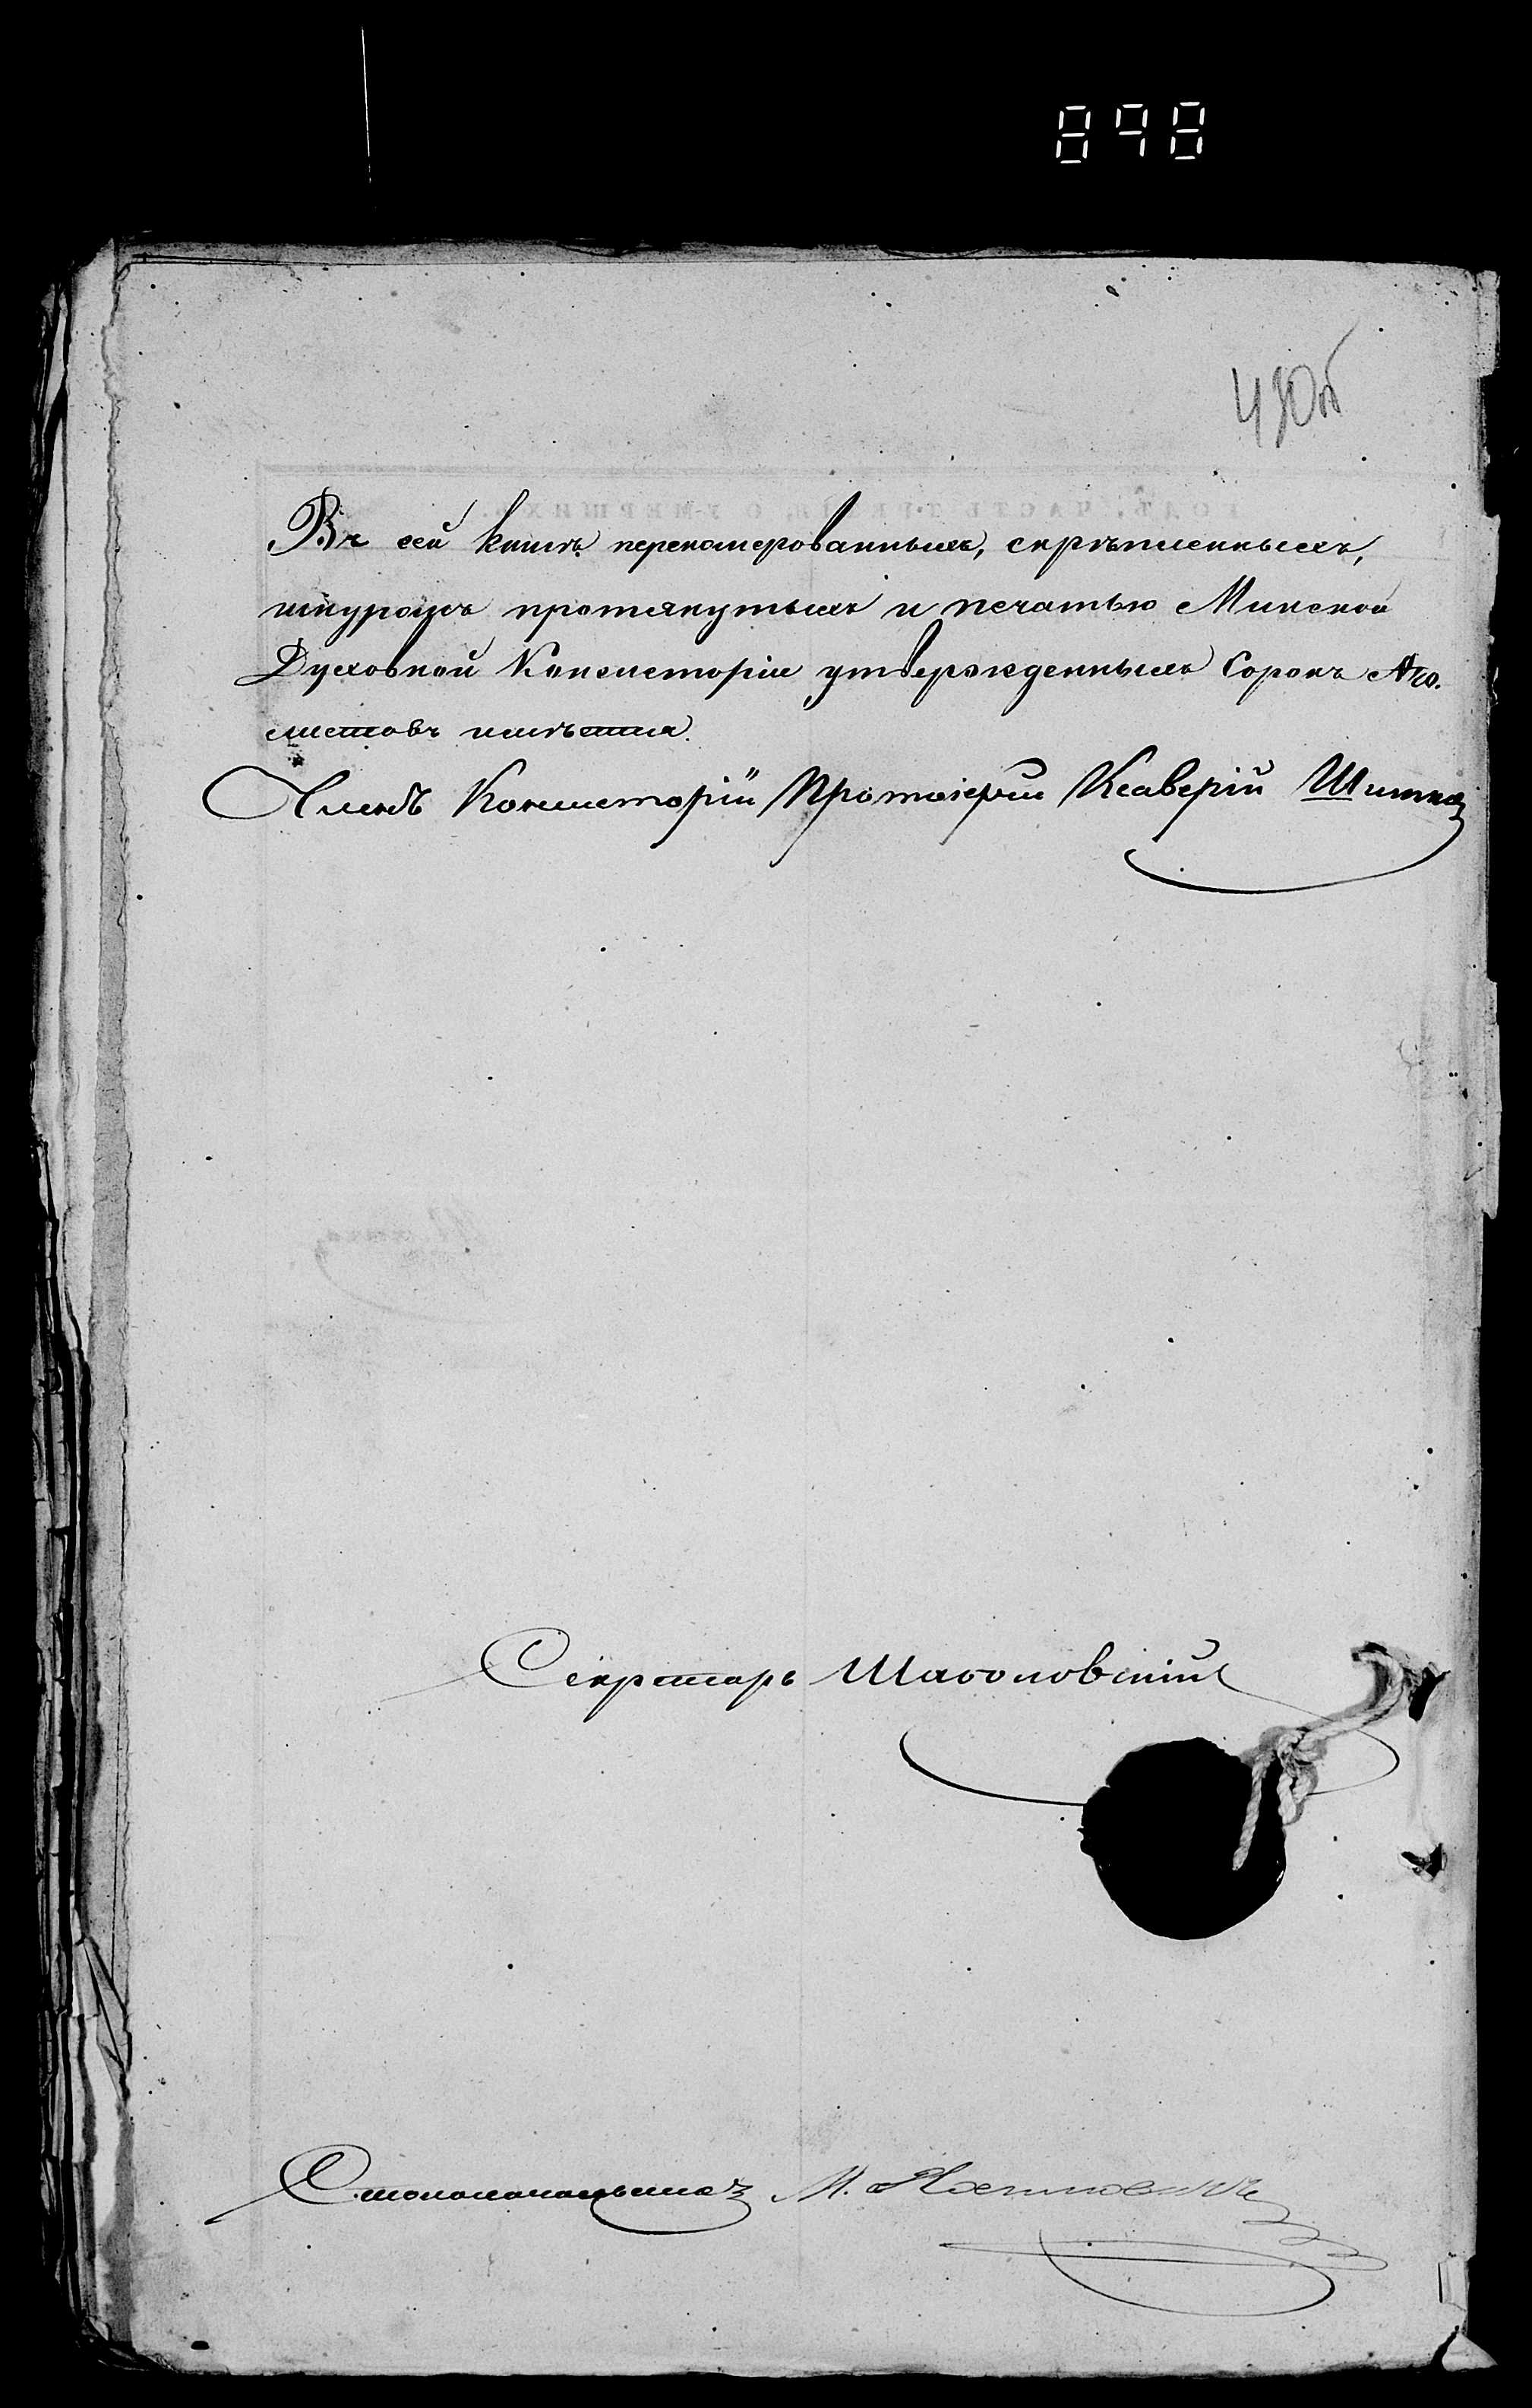 898
430б
Въ сей книгѣ перенумерованныхъ, скрѣпленныхъ,
шнуромъ протянутыхъ и печатью Минской
Духовной Консисторіи утвержденныхъ Сорокъ
листовъ имѣется.
Членъ Консисторіи Протоіерей Ксаверій
Секретарь
Столоначальникъ М.